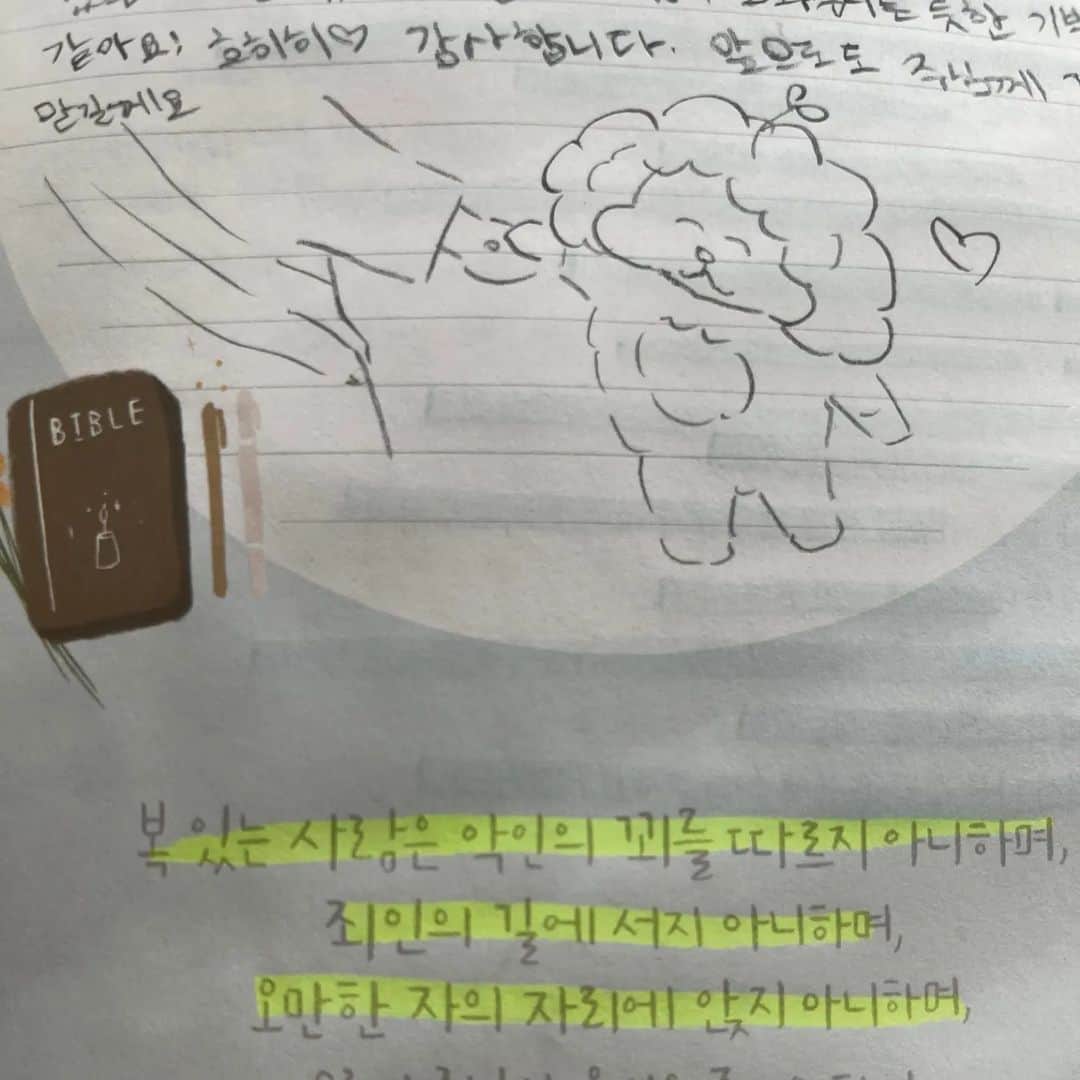 듯한
같아요! 호히히♡ 감사합니다. 앞으로도 주님께
맡길게요
BIBLE
복 있는 사람은 악인의 꾀를 따르지 아니하며,
죄인의 길에 서지 아니하며,
오만한 자의 자리에 앉지 아니하며,